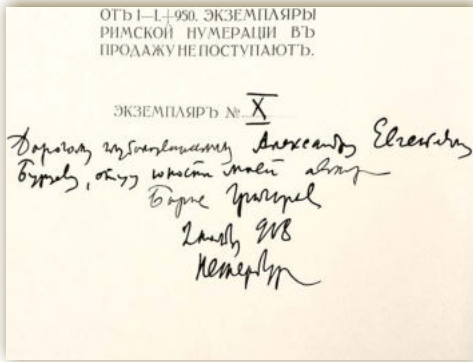 ОТЪ I—L+950. ЭКЗЕМПЛЯРЫ
РИМСКОЙ НУМЕРАЦІИ ВЪ
ПРОДАЖУ НЕ ПОСТУПАЮТЪ.
ЭКЗЕМПЛЯРЪ № X
Дорогому глубокочтимому Александру Евгеньевичу
Бурцеву, отцу юности моей автор
Борис Григорьев
918
Петербург